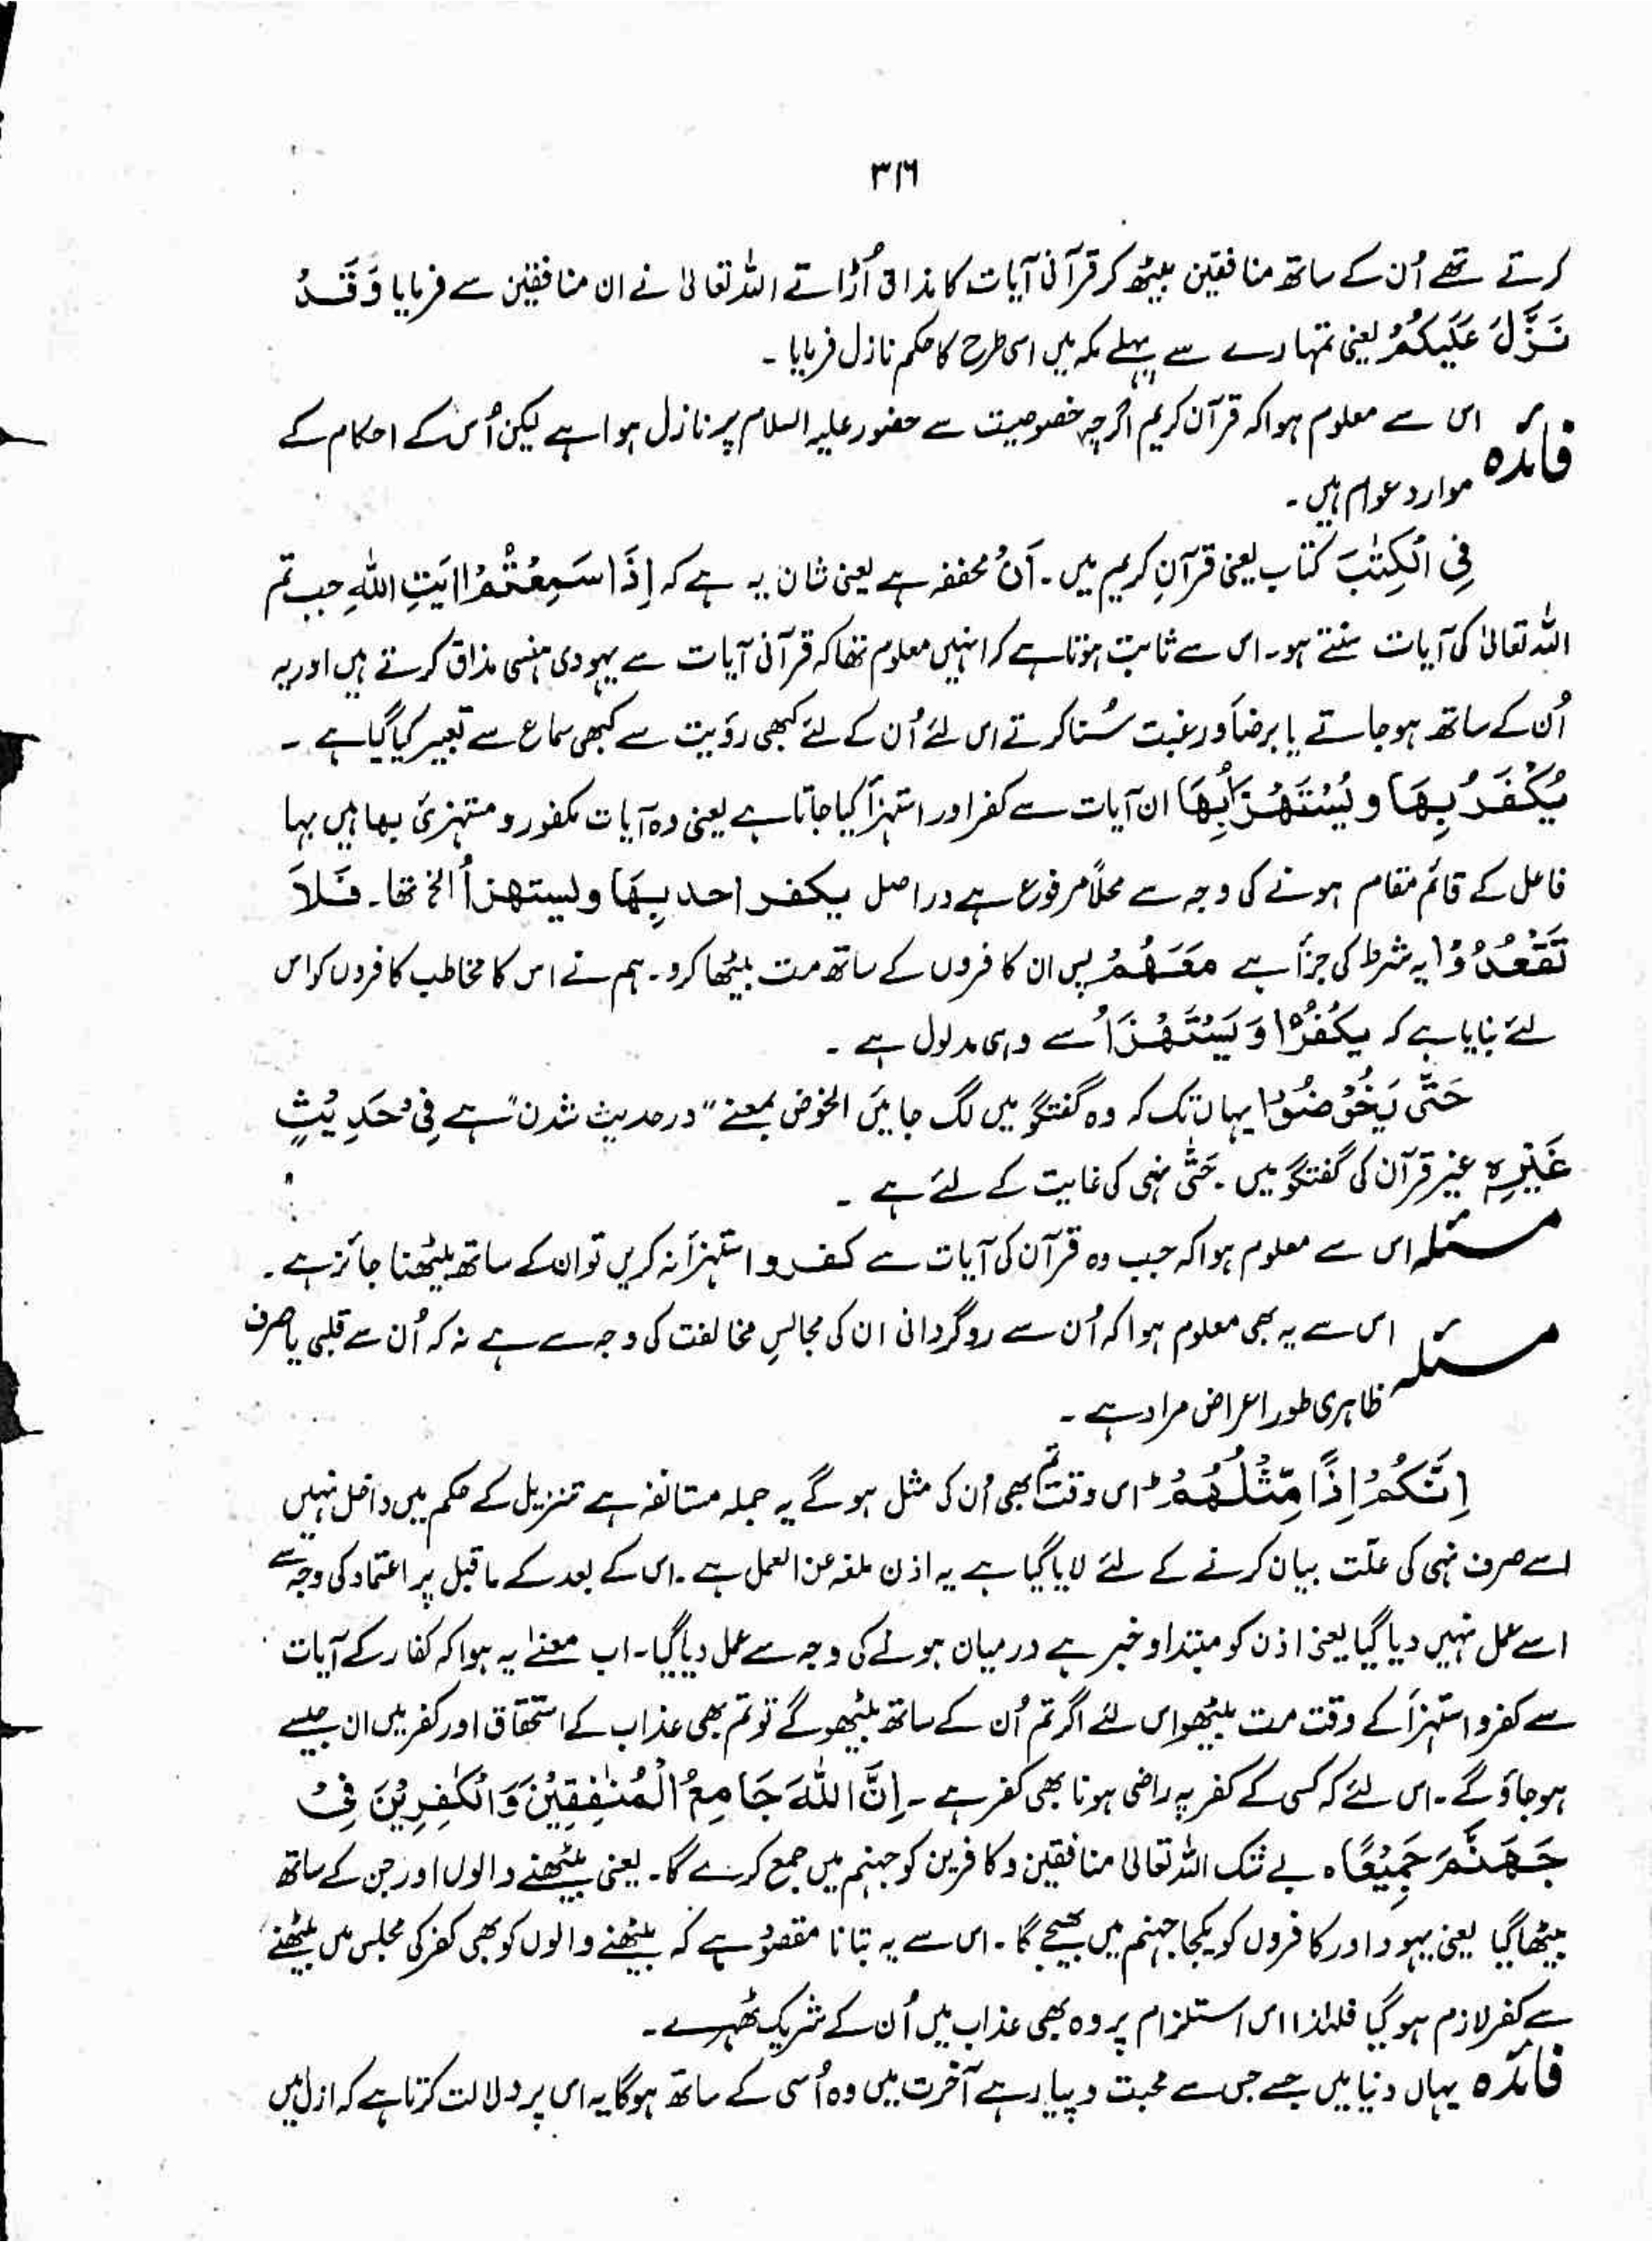 ۳۱۶
کرتے تھے اُن کے ساتھ منافقین بیٹھ کر قرآنی آیات کا مذاق اُڑاتے اللہ تعالیٰ نے ان منافقین سے فرمایا وَقَدْ
نَزَّلَ عَلَيْكُمْ یعنی تمہارے سے پہلے مکہ میں اسی طرح کا حکم نازل فرمایا ۔
فائدہ اس سے معلوم ہوا کہ قرآن کریم اگرچہ خصوصیت سے حضور علیہ السلام پر نازل ہوا ہے لیکن اُس کے احکام کے
موارد عوام ہیں ۔
فِي الْكِتٰبِ کتاب یعنی قرآنِ کریم میں ۔ اَنْ مخففہ ہے یعنی شان یہ ہے کہ اِذَا سَمِعْتُمْ اٰیٰتِ اللهِ جب تم
اللہ تعالیٰ کی آیات سنتے ہو ۔ اس سے ثابت ہوتا ہے کہ انہیں معلوم تھا کہ قرآنی آیات سے یہودی ہنسی مذاق کرتے ہیں اور یہ
اُن کے ساتھ ہو جاتے یا برضاَ ورغبت سُنا کرتے اس لئے اُن کے لئے کبھی رؤیت سے کبھی سماع سے تعبیر کیا گیا ہے ۔
يُكْفَرُ بِهَا و يُسْتَهْزَأُ بِهَا ان آیات سے کفر اور استہزأ کیا جاتا ہے یعنی وہ آیات مکفور و مستہزیٔ بھا ہیں بہا
فاعل کے قائم مقام ہونے کی وجہ سے محلاً مرفوع ہے دراصل یکفر احد بِهَا ولیستهزأ الخ تھا ۔ فَلَا
تَقْعُدُوْا یہ شرط کی جزأ ہے مَعَهُمْ پس ان کافروں کے ساتھ مت بیٹھا کرو ۔ ہم نے اس کا مخاطب کافروں کو اس
لئے بنایا ہے کہ یکُفُرُ وَ یَسْتَهْزَأُ سے وہی مدلول ہے ۔
حَتّٰى يَخُوْضُوْا یہاں تک کہ وہ گفتگو میں لگ جائیں الخوض بمعنے "درحدیث شدن" ہے فِیْ حَدِیْثٍ
غَيْرِهٖ غیر قرآن کی گفتگو میں ۔ حَتّٰى نہی کی غایت کے لئے ہے ۔
مسئلہ اس سے معلوم ہوا کہ جب وہ قرآن کی آیات سے کفر و استہزأ نہ کریں تو ان کے ساتھ بیٹھنا جائز ہے ۔
مسئلہ اس سے یہ بھی معلوم ہوا کہ اُن سے روگردانی ان کی مجالسِ مخالفت کی وجہ سے ہے نہ کہ اُن سے قلبی یا صرف
ظاہری طور اعراض مراد ہے ۔
اِنَّكُمْ اِذًا مِّثْلُهُمْ ط اس وقت تم بھی اُن کی مثل ہو گے یہ جملہ مستانفہ ہے تنزیل کے حکم میں داخل نہیں
اسے صرف نہی کی علّت بیان کرنے کے لئے لایا گیا ہے یہ اذن ملغہ عن العمل ہے ۔ اس کے بعد کے ماقبل پر اعتماد کی وجہ سے
اسے عمل نہیں دیا گیا یعنی اذن کو مبتدا و خبر ہے درمیان ہونے کی وجہ سے عمل دیا گیا ۔ اب معنےٰ یہ ہوا کہ کفار کے آیات
سے کفر و استہزأ کے وقت مت بیٹھو اس لئے اگر تم اُن کے ساتھ بیٹھو گے تو تم بھی عذاب کے استحقاق اور کفر میں ان جیسے
ہو جاؤ گے ۔ اس لئے کہ کسی کے کفر پہ راضی ہونا بھی کفر ہے ۔ اِنَّ اللهَ جَامِعُ الْمُنٰفِقِيْنَ وَالْكٰفِرِيْنَ فِىْ
جَهَنَّمَ جَمِيْعًا ہ بے شک اللہ تعالیٰ منافقین و کافرین کو جہنم میں جمع کرے گا ۔ یعنی بیٹھنے والوں اور جن کے ساتھ
بیٹھا گیا یعنی یہود اور کافروں کو یکجا جہنم میں بھیجے گا ۔ اس سے یہ بتانا مقصود ہے کہ بیٹھنے والوں کو بھی کفر کی مجلس میں بیٹھنے
سے کفر لازم ہو گیا فلہٰذا اس استلزام پر وہ بھی عذاب میں اُن کے شریک ٹھہرے ۔
فائدہ یہاں دنیا میں جسے جس سے محبت و پیار ہے آخرت میں وہ اُسی کے ساتھ ہو گا یہ اس پر دلالت کرتا ہے کہ ازل میں